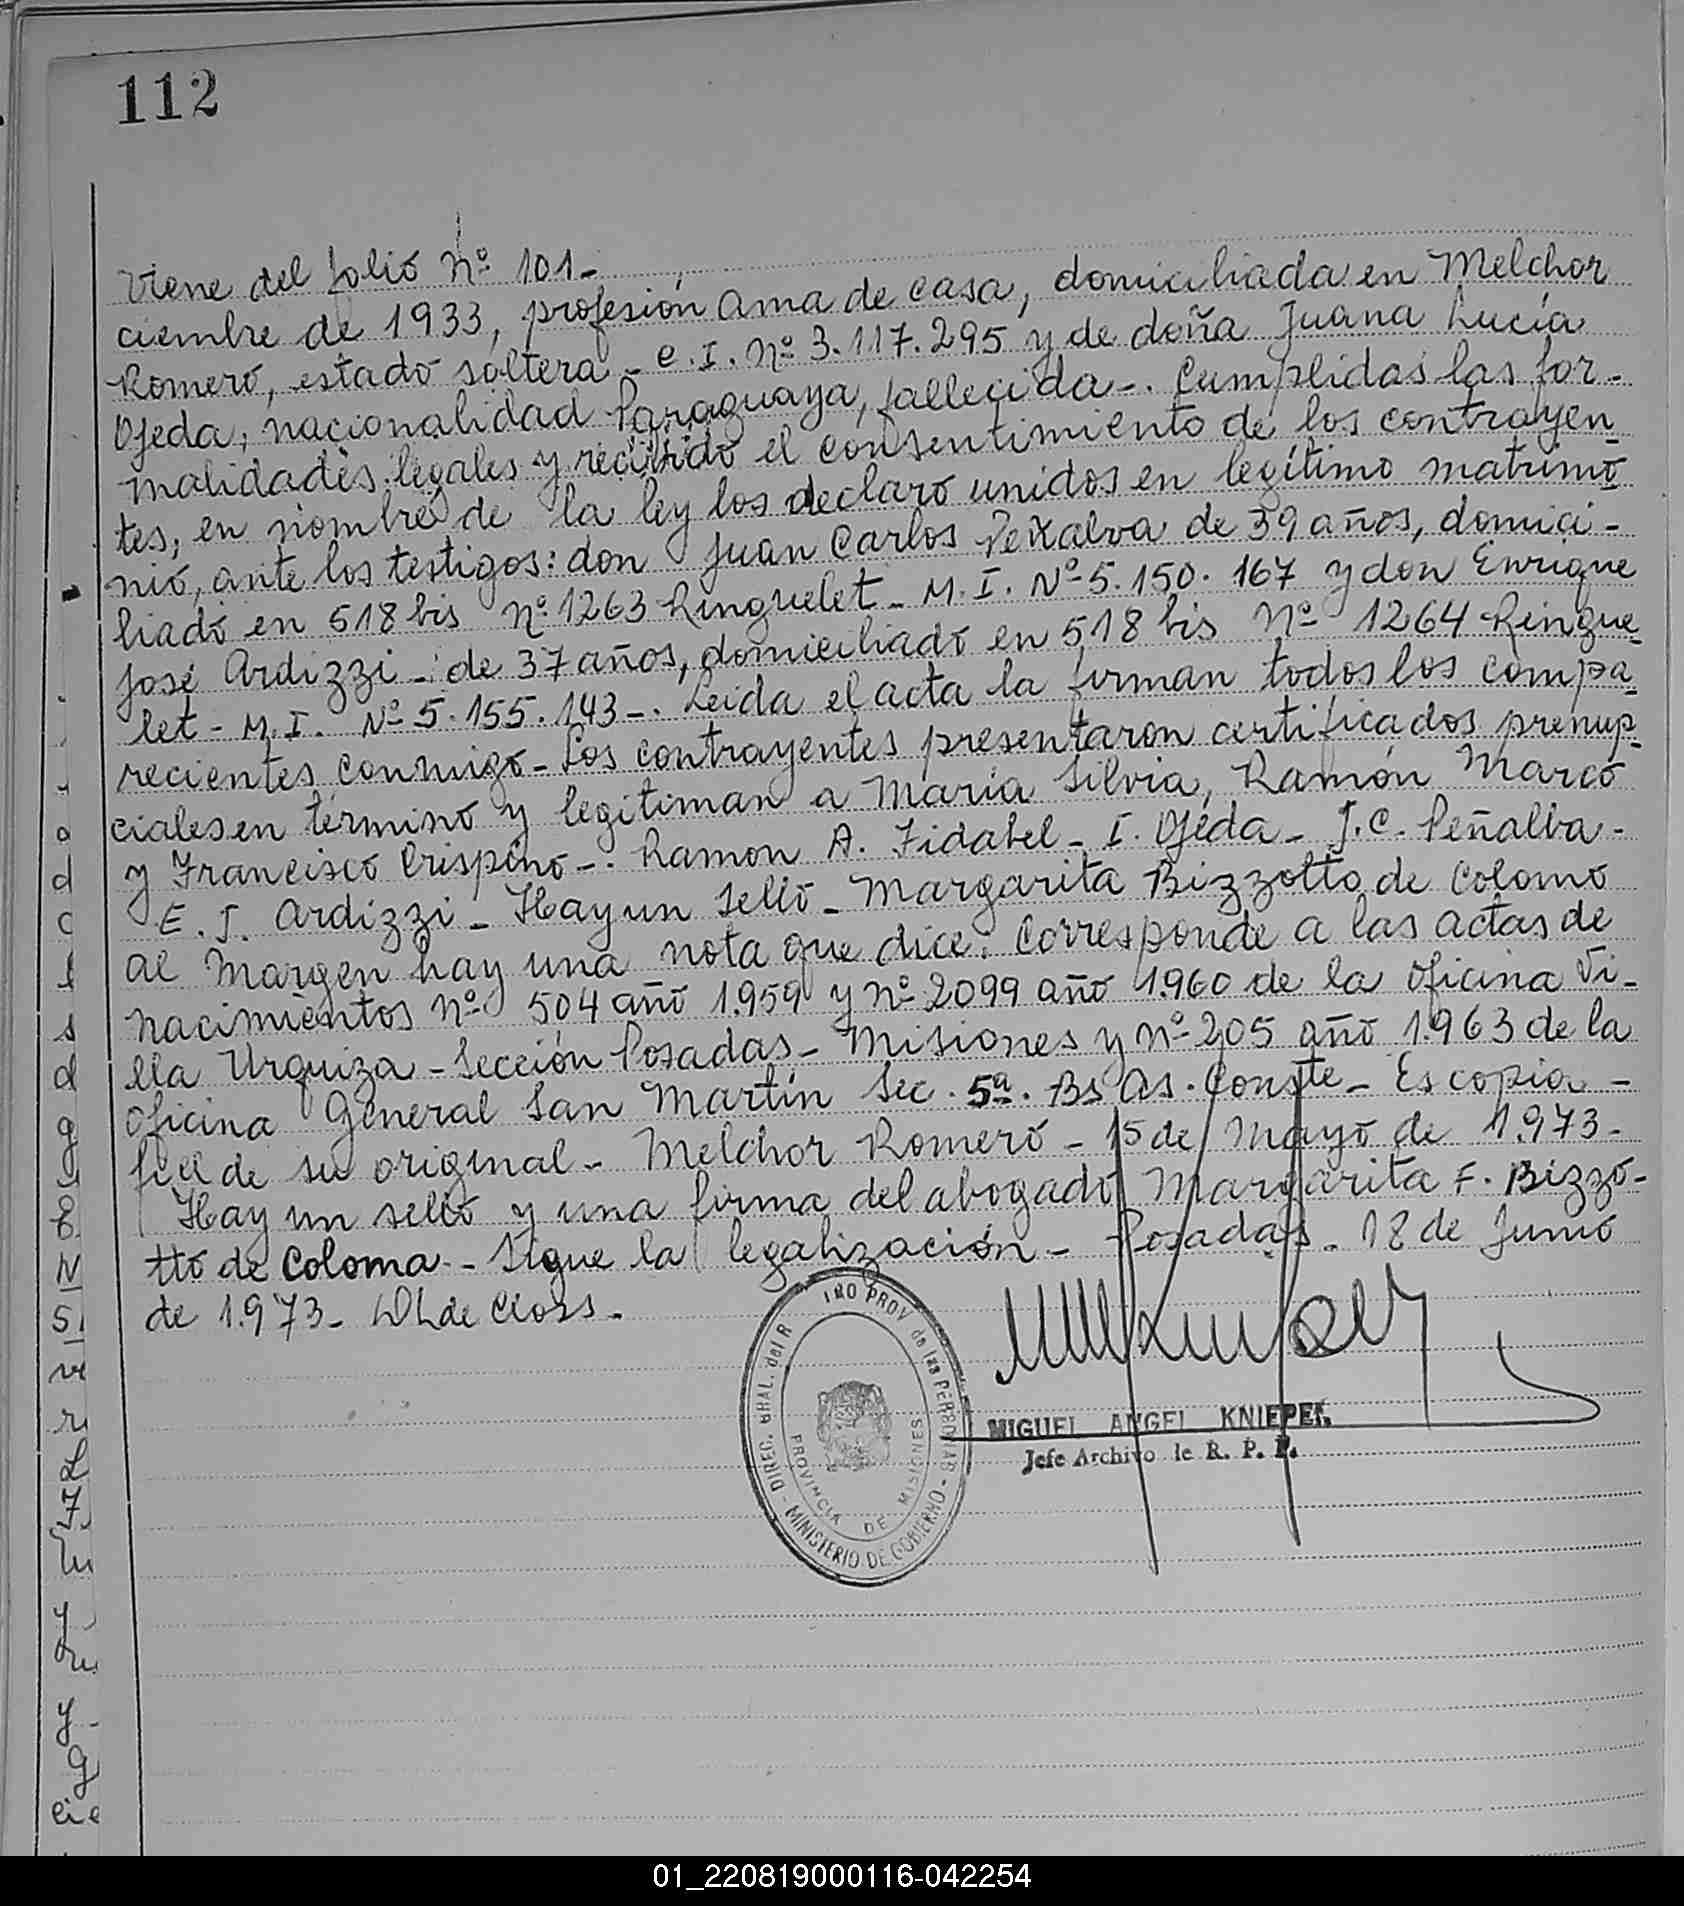 112
Viene del folio Nº 101-
ciembre de 1933, profesión ama de casa, domiciliada en Melchor
Romero, estado soltera - C.I. Nº 3.117.295 y de doña Juana Lucía
Ojeda, nacionalidad Paraguaya, fallecida -. Cumplidas las for-
malidades legales y recibido el consentimiento de los contrayen
tes, en nombre de la ley los declaro unidos en legítimo matrimo
nio, ante los testigos: don Juan Carlos Peñalva de 39 años, domici-
liado en 518 bis Nº 1263 Ringuelet - M.I. Nº 5.150.167 y don Enrique
José Ardizzi - de 37 años, domiciliado en 518 bis Nº 1264 Ringue-
let - M.I. Nº 5.155.143 -. Leida el acta la firman todos los compa-
recientes conmigo - Los contrayentes presentaron certificados prenup-
ciales en término y legitiman a María Silvia, Ramón Marco
y Francisco Crispino -. Ramon A. Fidabel - I. Ojeda - J.C. Peñalba -
E. J. Ardizzi - Hay un sello - Margarita Bizzotto de Colomo
al margen hay una nota que dice: Corresponde a las actas de
nacimientos Nº 504 año 1.959 y Nº 2099 año 1.960 de la oficina Vi-
lla Urquiza - Sección Posadas - Misiones y Nº 205 año 1.963 de la
oficina General San Martín Sec. 5ª. Bs As. Conste - Es copia -
fiel de su original - Melchor Romero - 15 de Mayo de 1.973 -
Hay un sello y una firma del abogado Margarita F. Bizzo-
tto de Coloma - Sigue la legalización - Posadas - 18 de Junio
de 1.973 - de Closs -
DIREC. GRAL. del R PROV de las PERSONAS - MINISTERIO DE GOBIERNO -
PROVINCIA DE MISIONES
MIGUEL ANGEL KNIEPER
Jefe Archivo de R. P. P.
01_220819000116-042254